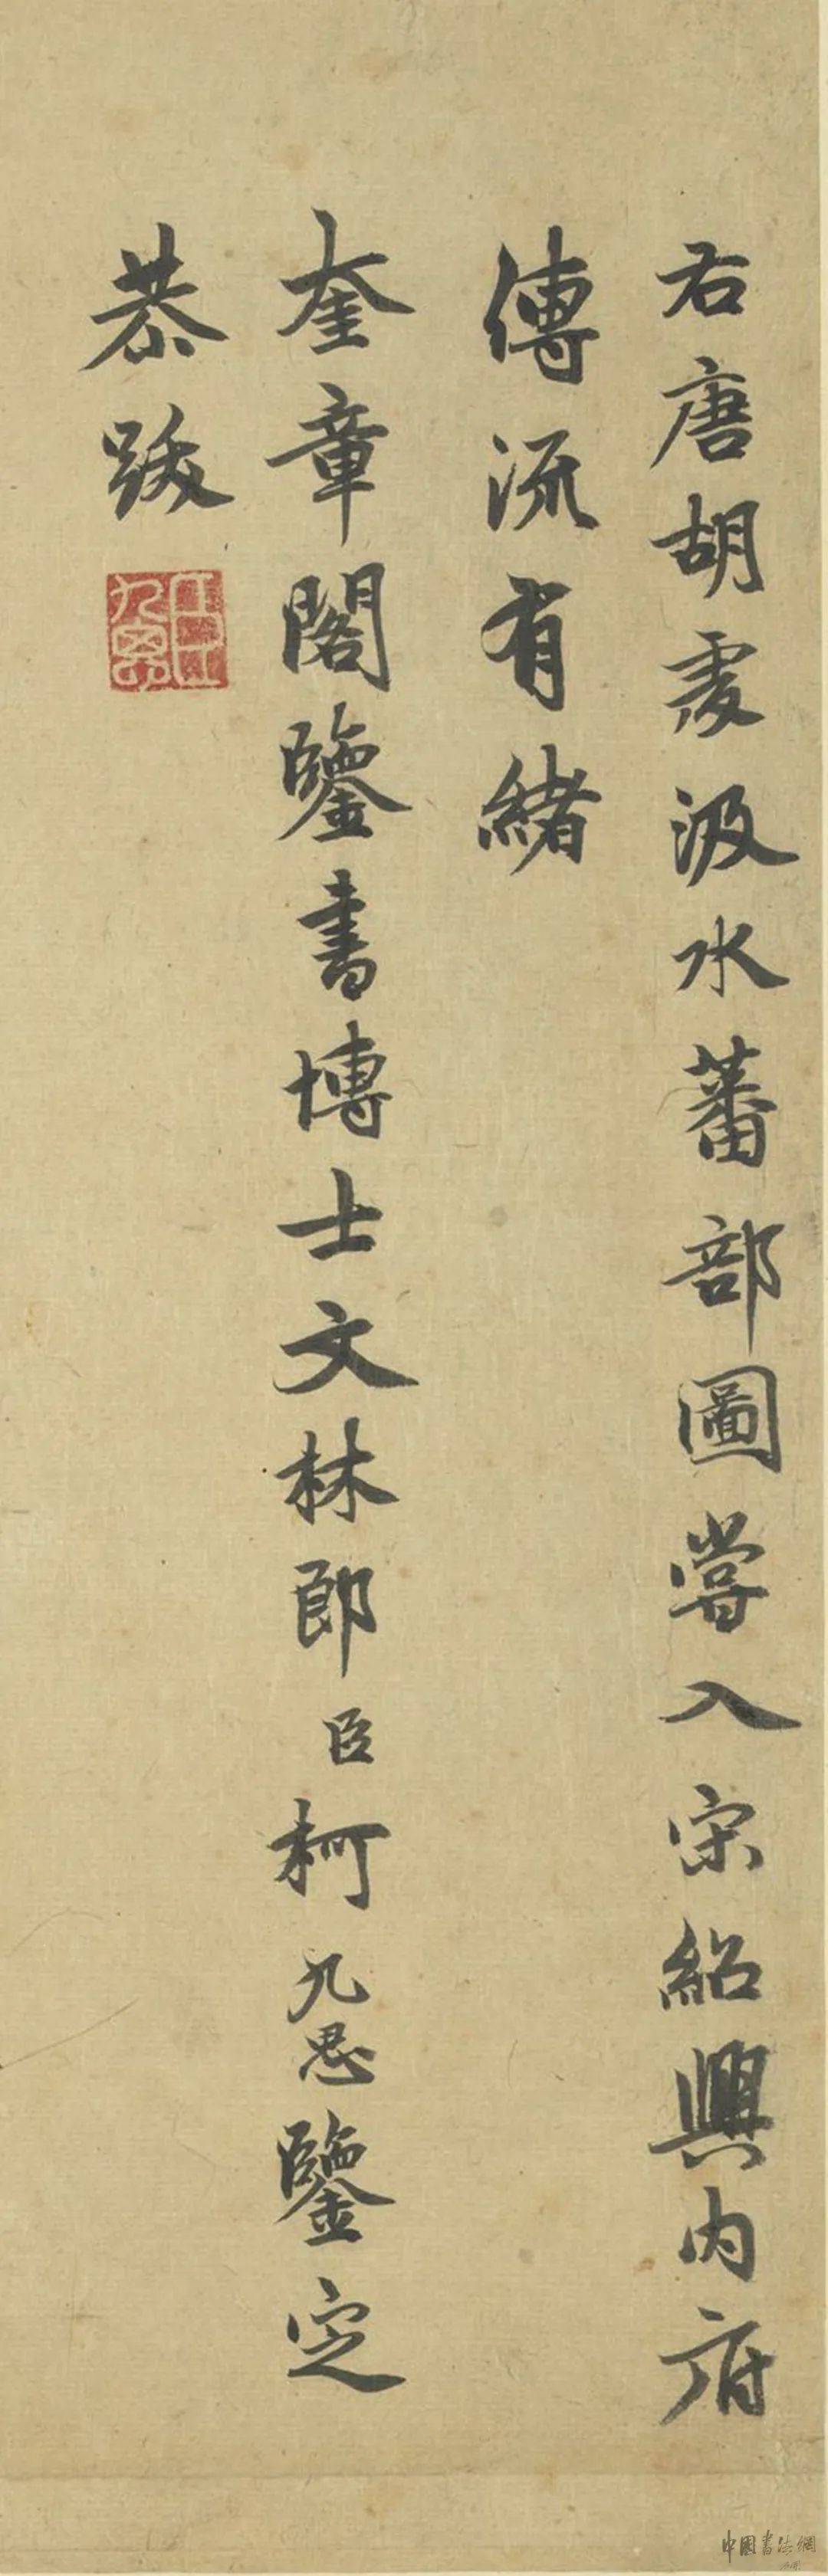 右唐胡虔汲水蕃部圖嘗入宋紹興内府
傳流有緒
奎章閣鑒書博士文林郎臣柯九思鑒定
恭跋
中國書法網